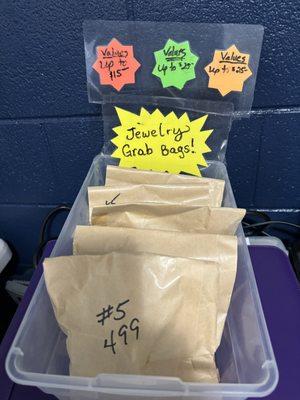 Values
Up to
$15-
Values
Up to $20-
Values
Up to $25-
Jewelry
Grab Bags!
#5
499